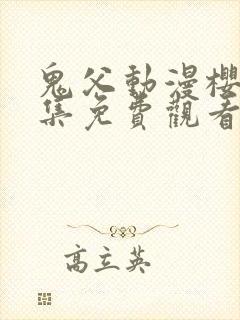 鬼父動漫櫻
集免費觀看
高立英